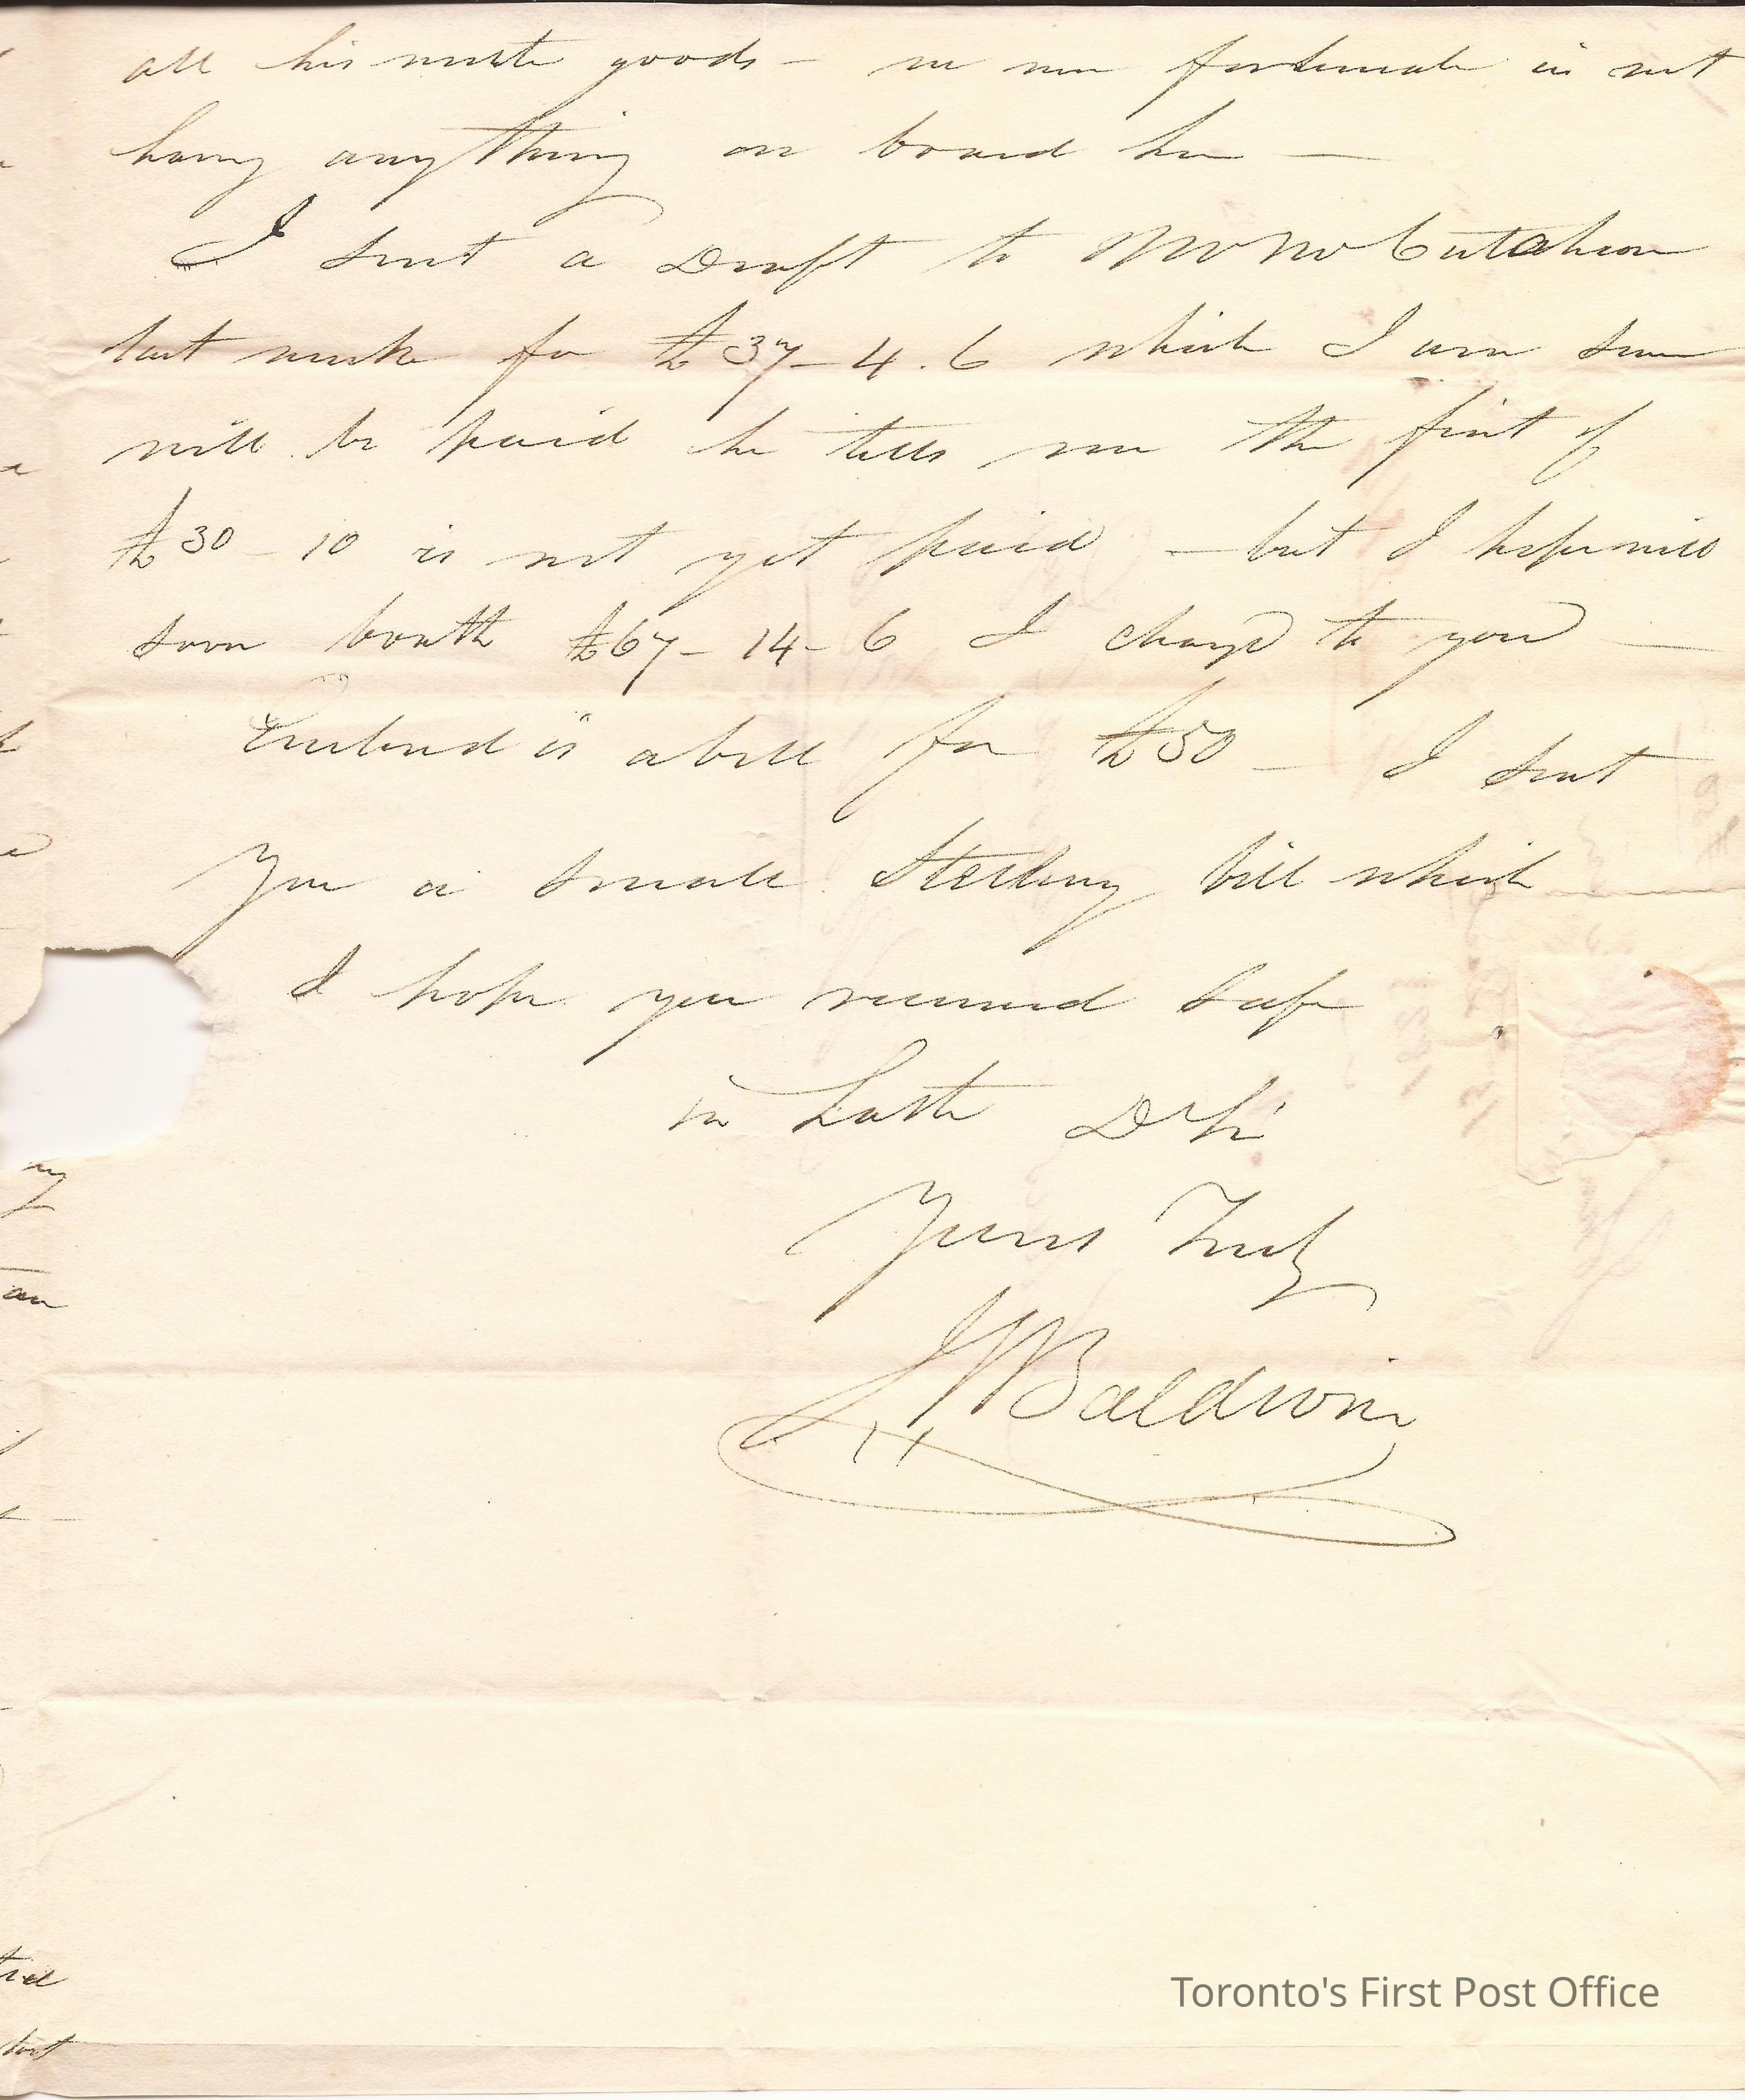 all his goods - we were fortunate in not
having anything on board her —
I sent a Draft to Mr Mc Cutcheon
last week for £37 - 4 . 6 which I am sure
will be paid he tells me the first of
£30 - 10 is not yet paid - but I hope will
soon be both £67 - 14 - 6 I charged to you —
Enclosed is a bill for £50 — I sent
You a small Sterling bill which
I hope you received safe
in haste Dr Sir
Yours Truly
J S Baldwin
Toronto's First Post Office